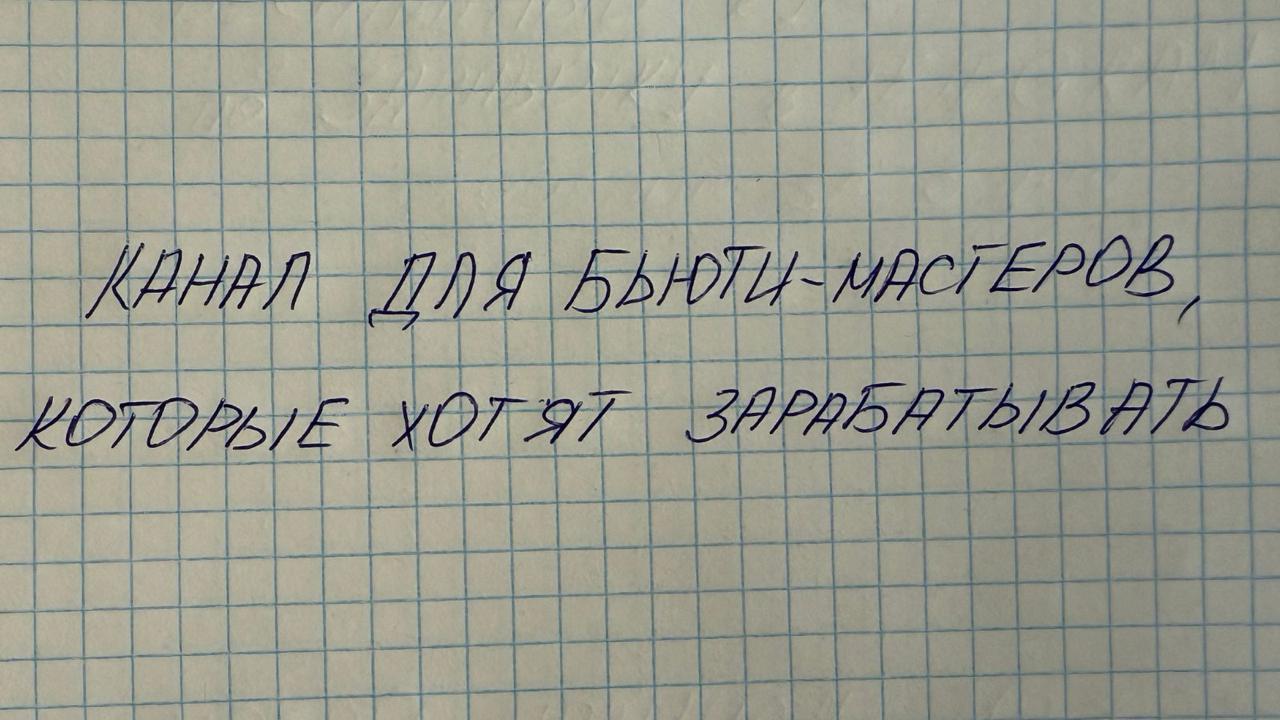 КАНАЛ ДЛЯ БЬЮТИ-МАСТЕРОВ,
КОТОРЫЕ ХОТЯТ ЗАРАБАТЫВАТЬ